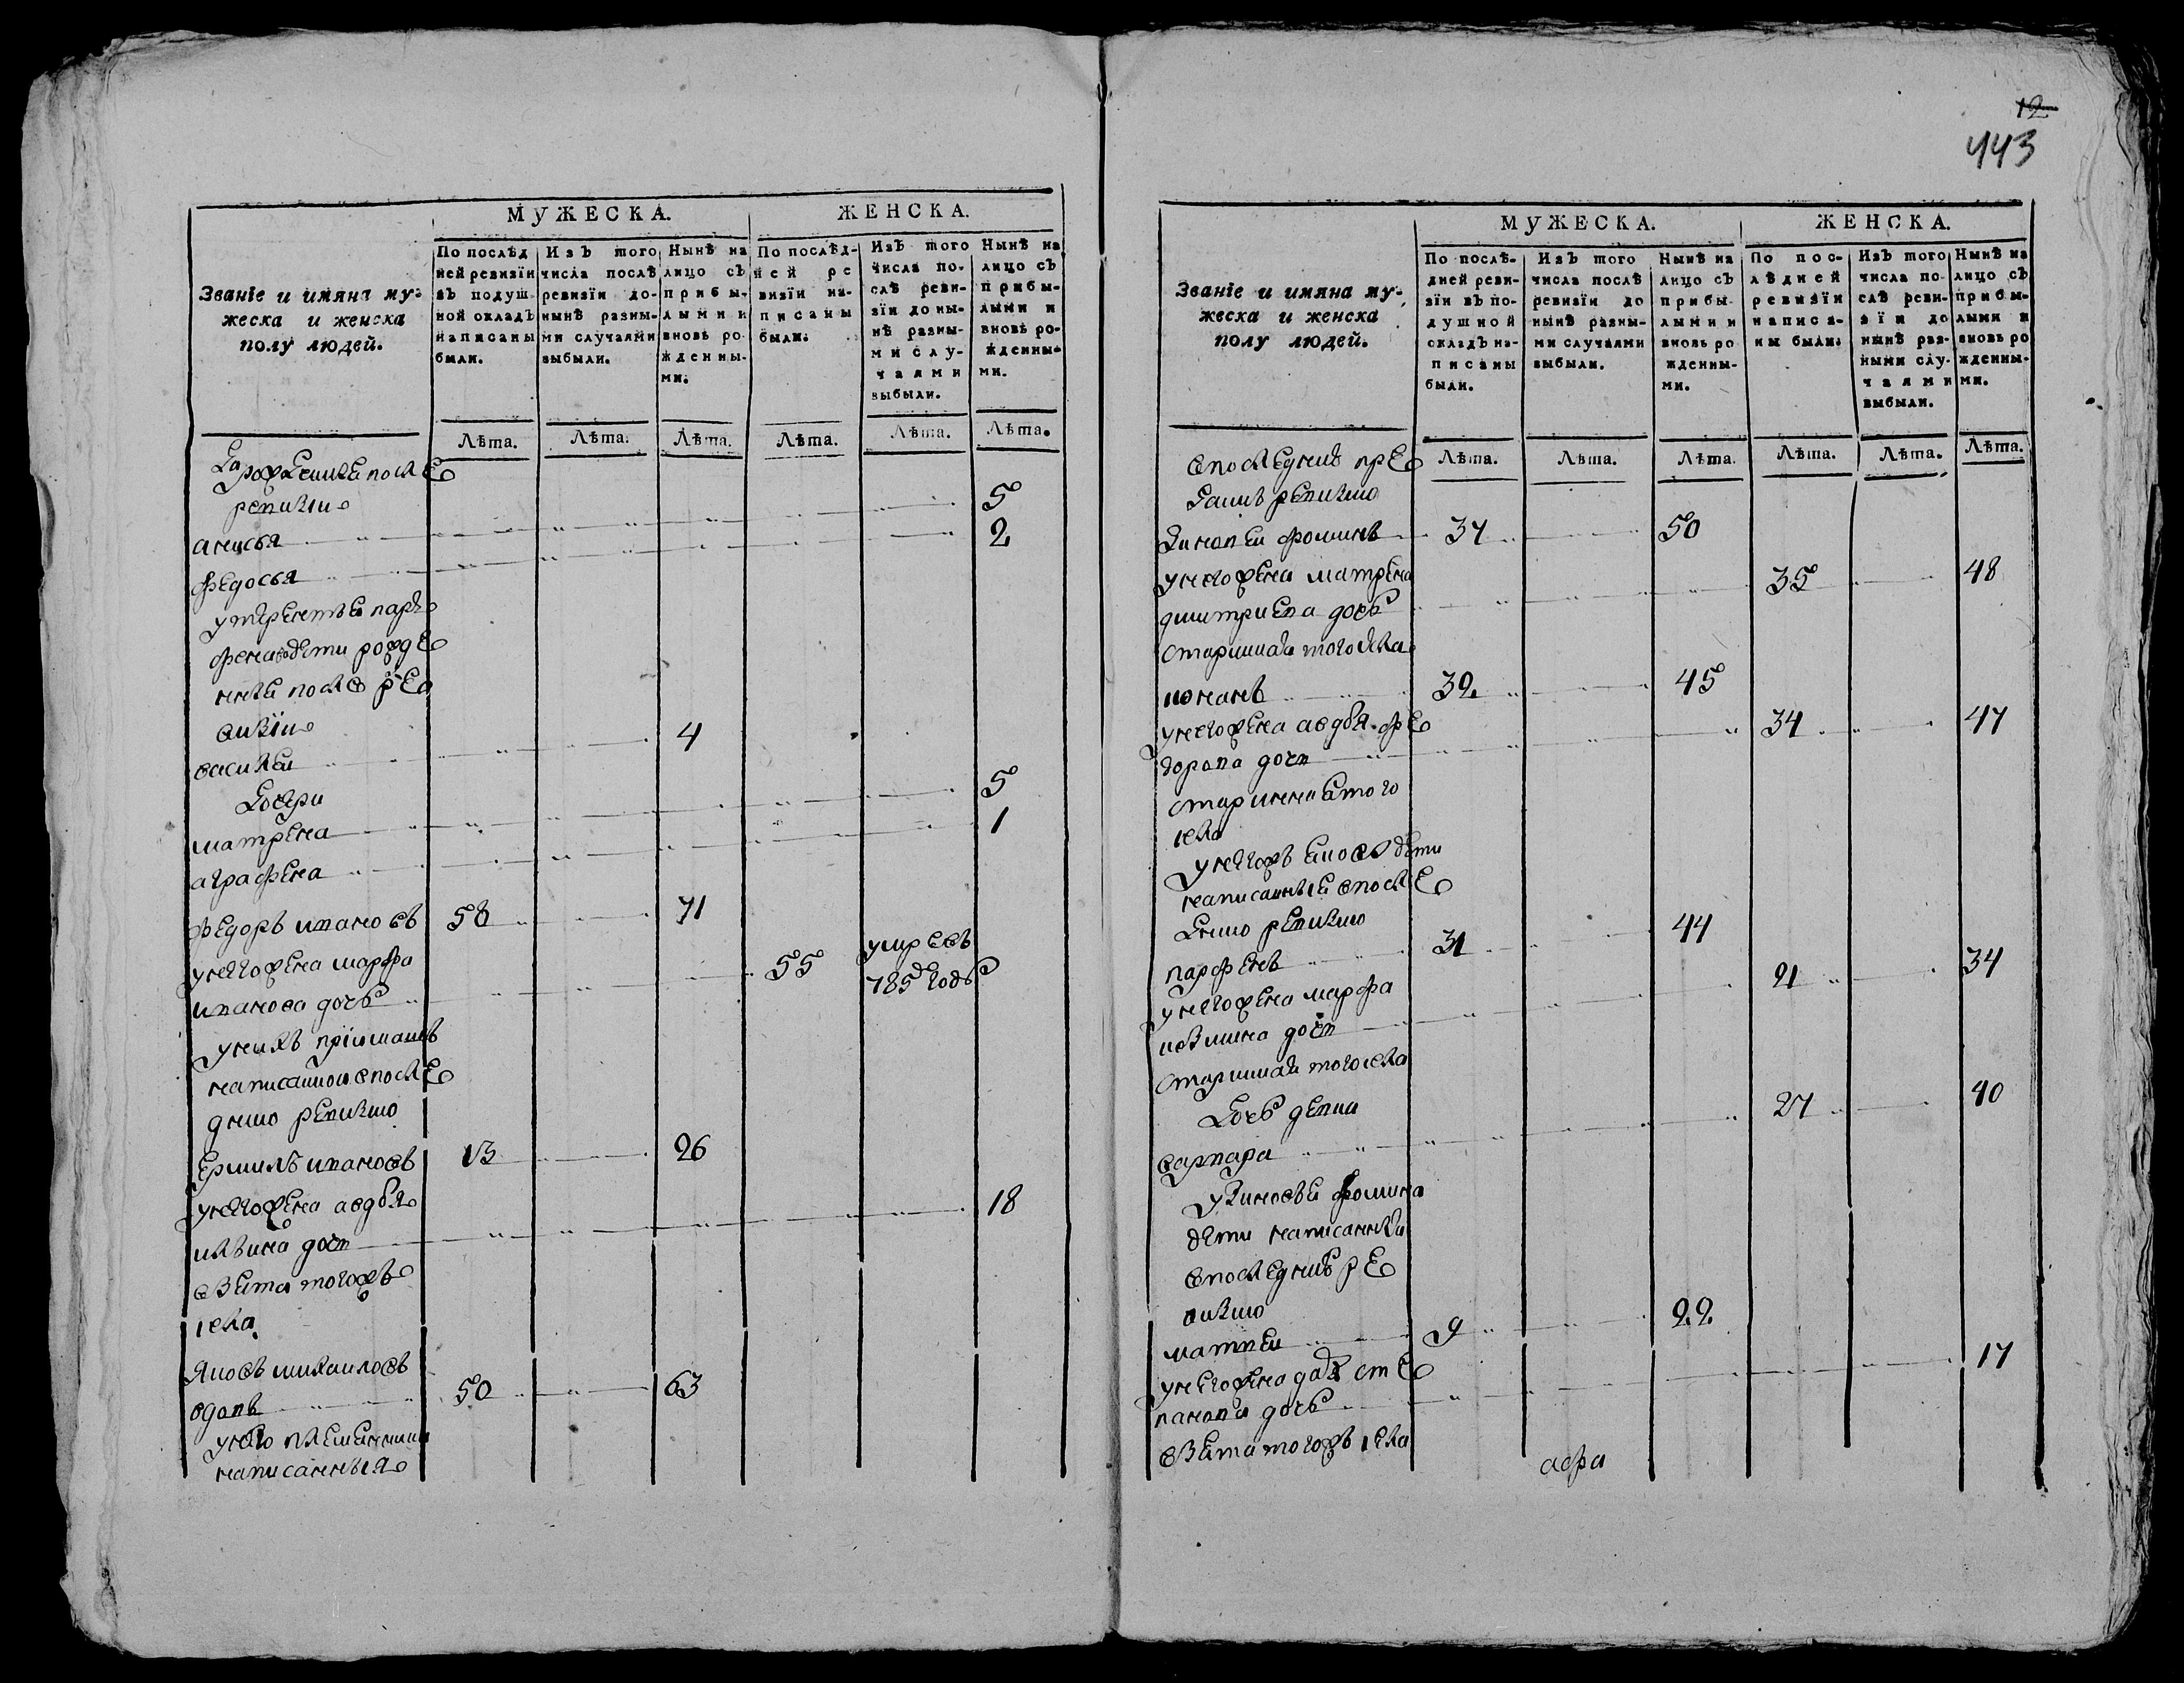 12
443
МУЖЕСКА.
ЖЕНСКА.
Званіе и имяна му-
жеска и женска
полу людей.
По послѣд
ней ревизіи
въ подуш
ной окладъ
написаны
были.
Изъ того
числа послѣ
ревизіи до-
нынѣ разны-
ми случаями
выбыли.
Нынѣ на
лицо съ
прибы-
лыми и
вновь ро
жденны-
ми.
По послѣд-
ней ре
визіи на-
писаны
были.
Изъ того
числа по-
слѣ реви-
зіи до ны-
нѣ разны-
ми слу-
чаями
выбыли.
Нынѣ на
лицо съ
прибы-
лыми и
вновь ро-
жденны-
ми.
Лѣта. Лѣта. Лѣта. Лѣта. Лѣта. Лѣта.
рожденные после
ревизии
анисья 5
федосья 2
у терентья пар
фенова дети рожде
нные после ре
визіи
василеи 4
дочери
матрена 5
аграфена 1
федоръ ивановъ 58 71
у него жена марфа
иванова дочь 55 умре въ 785 годъ
у нихъ пріимашъ
написанной в после
днию ревизию
ермилъ ивановъ 13 26
у него жена авдотья
ильина дочь 18
взята тогожъ
села
яковъ михаиловъ
вдовъ 50 63
у него племянники
написанныя
МУЖЕСКА.
ЖЕНСКА.
Званіе и имяна му-
жеска и женска
полу людей.
По послѣ-
дней реви-
зіи въ по-
душной
окладъ на-
писаны
были.
Изъ того
числа послѣ
ревизіи до
нынѣ разны-
ми случаями
выбыли.
Нынѣ на
лицо съ
прибы-
лыми и
вновь ро
жденны-
ми.
По пос-
лѣдней
ревизіи
написа-
ны были.
Изъ того
числа по-
слѣ реви-
зіи до
нынѣ раз-
ными слу-
чаями
выбыли.
Нынѣ на
лицо съ
прибы-
лыми и
вновь ро
жденны-
ми.
Лѣта. Лѣта. Лѣта. Лѣта. Лѣта. Лѣта.
в последнию пре
ревизию
зиновеи фоминъ 37 50
у него жена матрена
дмитриева дочь 35 48
старинная того села
иванъ 32 45
у него жена авдотья фе
дорова дочь 34 47
старинная того
села
у него дети
написанные в после
днию ревизию
парфенъ 31 44
у него жена марфа
дочь 21 34
старинная того села
дочь девка
варвара 27 40
у зиновья фомина
дети написанные
в последнию ре
визию
матвеи 9 22
у него жена дарья сте
панова дочь 17
взята тогожъ села